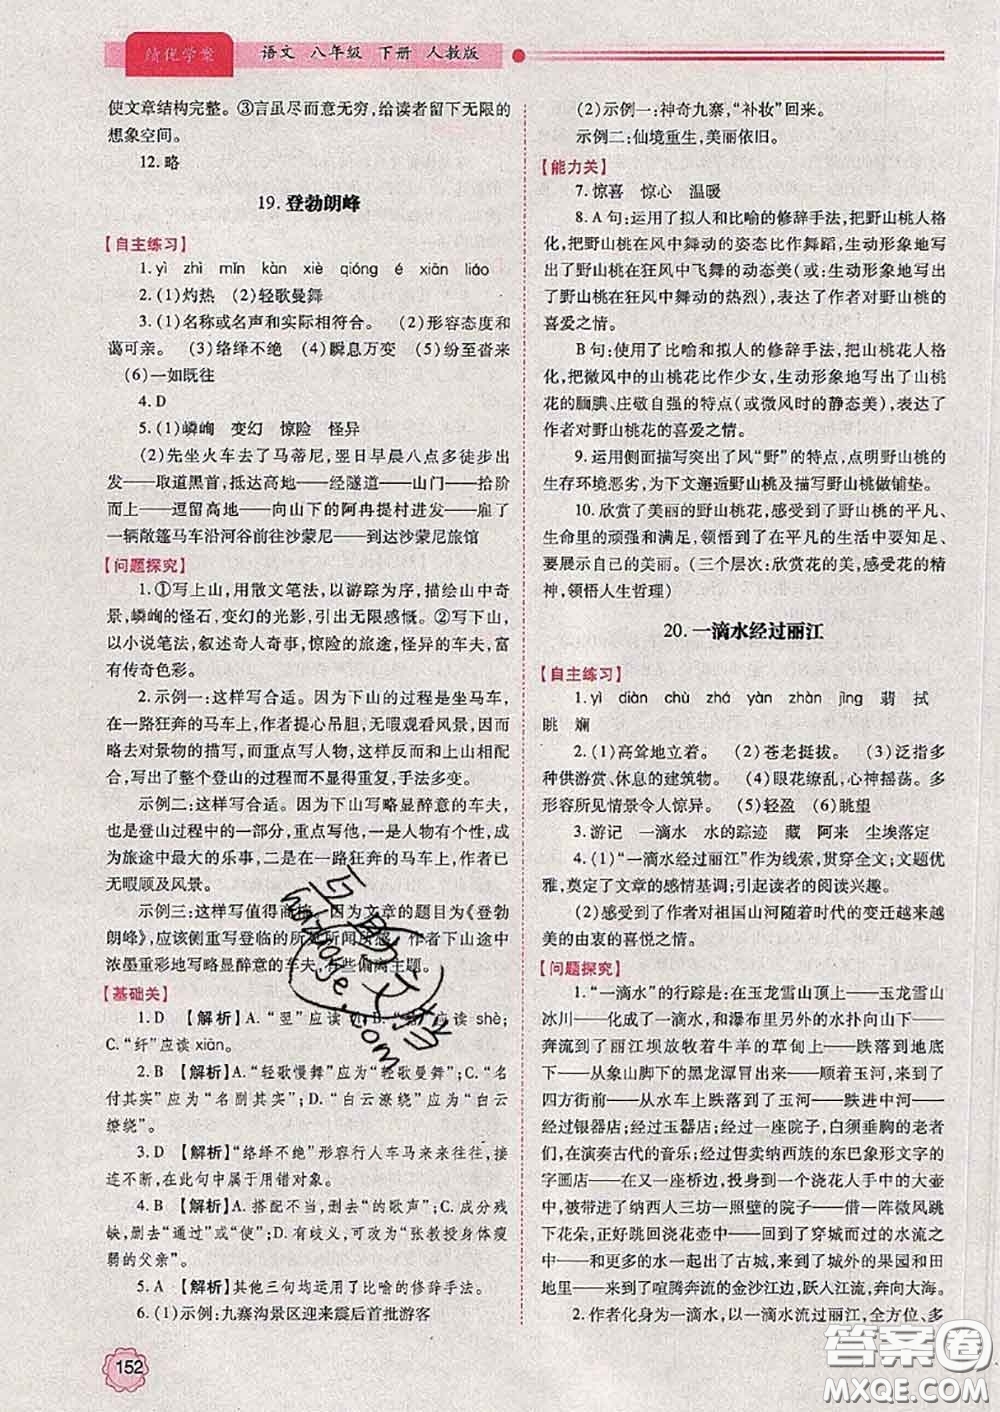 绩优学案
语文 八年级 下册 人教版
使文章结构完整。③言虽尽而意无穷,给读者留下无限的
想象空间。
12.略
19. 登勃朗峰
【自主练习】
1. yì zhì mǐn kàn xiè qióng é xiān liáo
2. (1)灼热 (2)轻歌曼舞
3. (1)名称或名声和实际相符合。 (2)形容态度和
蔼可亲。 (3)络绎不绝 (4)瞬息万变 (5)纷至沓来
(6)一如既往
4. D
5. (1)嶙峋 变幻 惊险 怪异
(2)先坐火车去了马蒂尼,翌日早晨八点多徒步出
发——取道黑首,抵达高地——经隧道——山门——拾阶
而上——逗留高地——向山下的阿冉提村进发——雇了
一辆敞篷马车沿河谷前往沙蒙尼——到达沙蒙尼旅馆
【问题探究】
1. ①写上山,用散文笔法,以游踪为序,描绘山中奇
景,嶙峋的怪石,变幻的光影,引出无限感慨。②写下山,
以小说笔法,叙述奇人奇事,惊险的旅途,怪异的车夫,富
有传奇色彩。
2. 示例一:这样写合适。因为下山的过程是坐马车,
在一路狂奔的马车上,作者提心吊胆,无暇观看风景,因而
略去对景物的描写,而重点写人物,这样既和上山相区别,
写出了整个登山的过程,但是不显得重复,手法多变。
示例二:这样写合适。因为下山写略显醉意的车夫,
也是登山过程中的一部分,重点写他,一是人物有个性,
成为旅途中最大的乐事,二是在一路狂奔的马车上,作者已
无暇顾及风景。
示例三:这样写值得商榷。因为文章的题目为《登勃
朗峰》,应该侧重写登临的所见所闻所感,作者下山途中
浓墨重彩地写略显醉意的车夫,有些偏离主题。
【基础关】
1. D 【解析】A. “翌”应读 yì;B. 应读 shè;
C. “纤”应读 xiān。
2. B 【解析】A. “轻歌慢舞”应为“轻歌曼舞”;C. “名
付其实”应为“名副其实”;D. “白云潦绕”应为“白云
缭绕”。
3. D 【解析】“络绎不绝”形容行人车马来来往往,
在此句中属于用错对象。
4. B 【解析】A. 搭配不当,删去“的歌声”;C. 成分残
缺,删去“通过”或“使”;D. 有歧义,可改为“张教授身体瘦
弱的父亲”。
5. A 【解析】其他三句均运用了比喻的修辞手法。
6. (1)示例:九寨沟景区迎来震后首批游客
152
(2)示例一:神奇九寨,“补妆”回来。
示例二:仙境重生,美丽依旧。
【能力关】
7. 惊喜 惊心 温暖
8. A句:运用了拟人和比喻的修辞手法,把野山桃人格
化,把野山桃在风中舞动的姿态比作舞蹈,生动形象地
写出了野山桃在狂风中飞舞的动态美(或:生动形象地写
出了野山桃在狂风中舞动的热烈),表达了作者对野山桃的
喜爱之情。
B句:使用了比喻和拟人的修辞手法,把山桃花人格
化,把微风中的山桃花比作少女,生动形象地写出了山桃
花的腼腆、庄敬自强的特点(或微风时的静态美),表达了
作者对野山桃花的喜爱之情。
9. 运用侧面描写突出了风“野”的特点,点明野山桃的
生存环境恶劣,为下文邂逅野山桃及描写野山桃做铺垫。
10. 欣赏了美丽的野山桃花,感受到了野山桃的平凡、
生命里的顽强和满足,领悟到了在平凡的生活中要知足、
要发现自己的美丽。(三个层次:欣赏花的美,感受花的精
神,领悟人生哲理)
20. 一滴水经过丽江
【自主练习】
1. yì diàn chù zhá yàn zhàn jìng 翡 拭
眺 斓
2. (1)高耸地立着。 (2)苍老挺拔。 (3)泛指许
多种供游赏、休息的建筑物。 (4)眼花缭乱,心神摇荡。多
形容所见情景令人惊异。 (5)轻盈 (6)眺望
3. 游记 一滴水 水的踪迹 藏 阿来 尘埃落定
4. (1)“一滴水经过丽江”作为线索,贯穿全文;文题优
雅,奠定了文章的感情基调;引起读者的阅读兴趣。
(2)感受到了作者对祖国山河随着时代的变迁越来越
美的由衷的喜悦之情。
【问题探究】
1. “一滴水”的行踪是:在玉龙雪山顶上——玉龙雪山
冰川——化成了一滴水,和瀑布里另外的水扑向山下——
奔流到了丽江坝放牧着牛羊的草甸上——跌落到地底
下——从象山脚下的黑龙潭冒出来——顺着玉河,来到了
四方街前——从水车上跌落到了玉河——跌进中河——
——经过银器店;经过玉器店;经过一座院子,白须垂胸的老者
们,在演奏古代的音乐;经过售卖纳西族的东巴象形文字的
字画店——在又一座桥边,进到了一个浇花人手中的大壶
中,被带进了纳西人三坊一照壁的院子——借一阵微风跳
下花朵,正好跳回浇花壶中——回到了穿城而过的水流之中
——和更多的水一起出了古城,来到了城外的果园和田
地里——来到了喧腾奔流的金沙江边,跃入江流,奔向大海。
2. 作者化身为一滴水,以一滴水流过丽江,全方位、多
答案圈
MXQE.COM